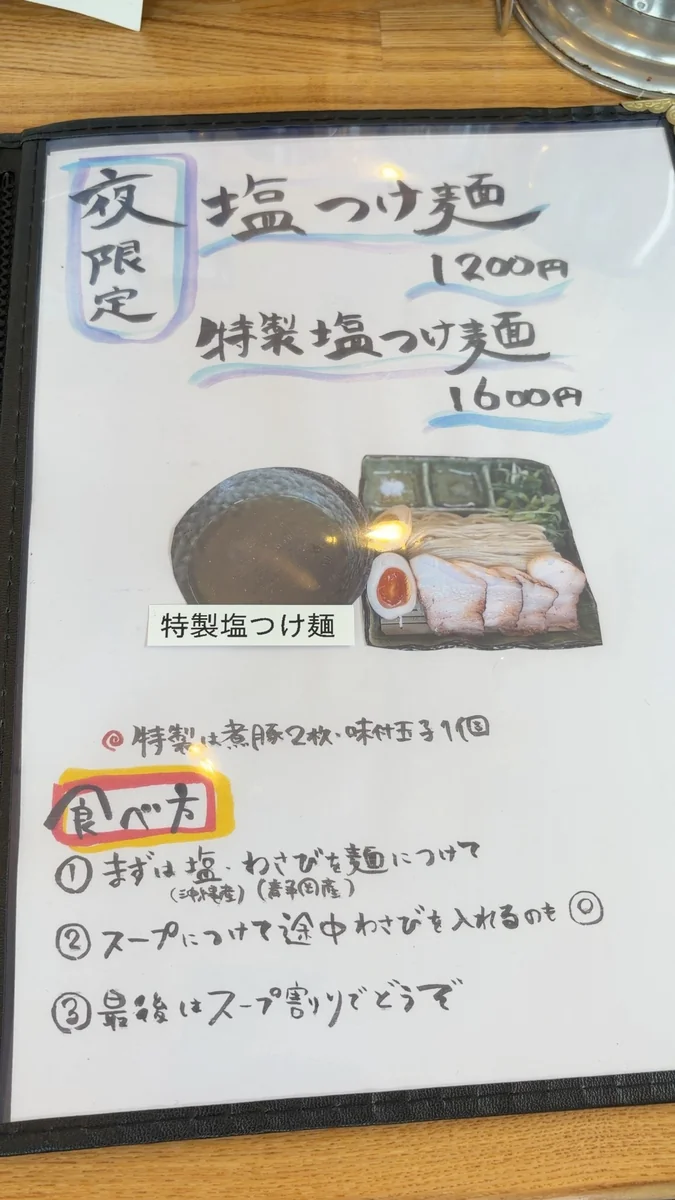 夜限定
塩つけ麺
1200円
特製塩つけ麺
1600円
特製塩つけ麺
特製は煮豚2枚・味付玉子1個
食べ方
① まずは塩・わさびを麺につけて
(沖縄産) (静岡産)
② スープにつけて途中わさびを入れるのも◎
③ 最後はスープ割りでどうぞ